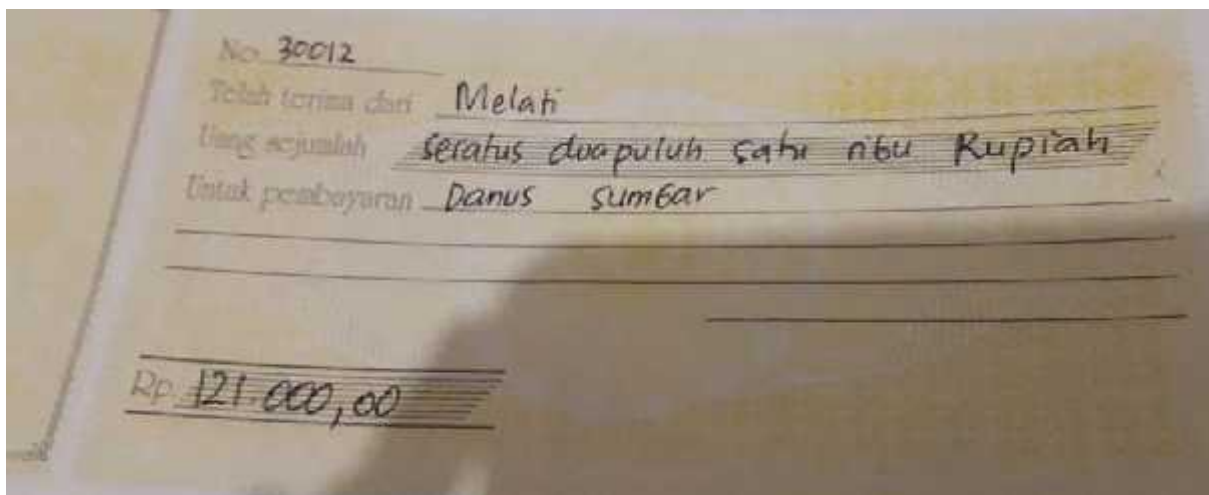 No. 30012
Telah terima dari Melati
Uang sejumlah seratus duapuluh satu ribu Rupiah
Untuk pembayaran Danus sumbar
Rp. 121.000,00